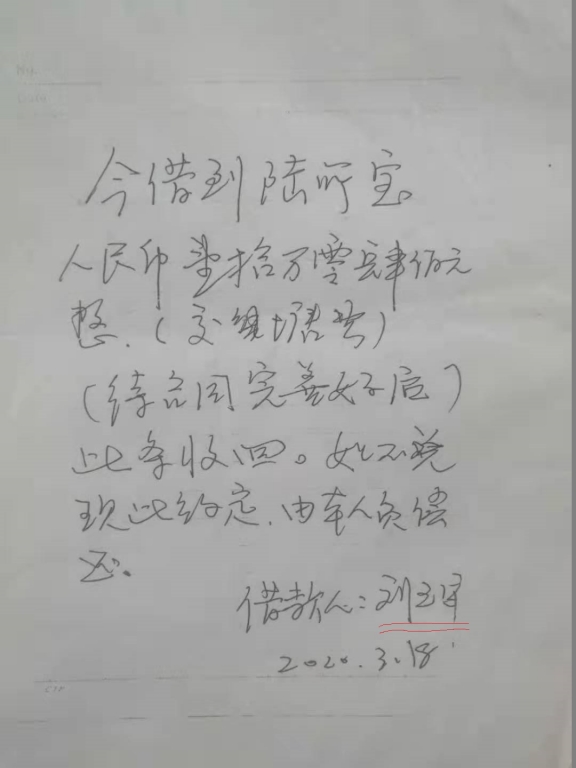 今借到陆所宝
人民币壹拾万零肆佰元
整.(交
(待合同完善好后)
此条收回。如不兑
现此约定,由本人负偿
还。
借款人:刘玉军
2020.3.18